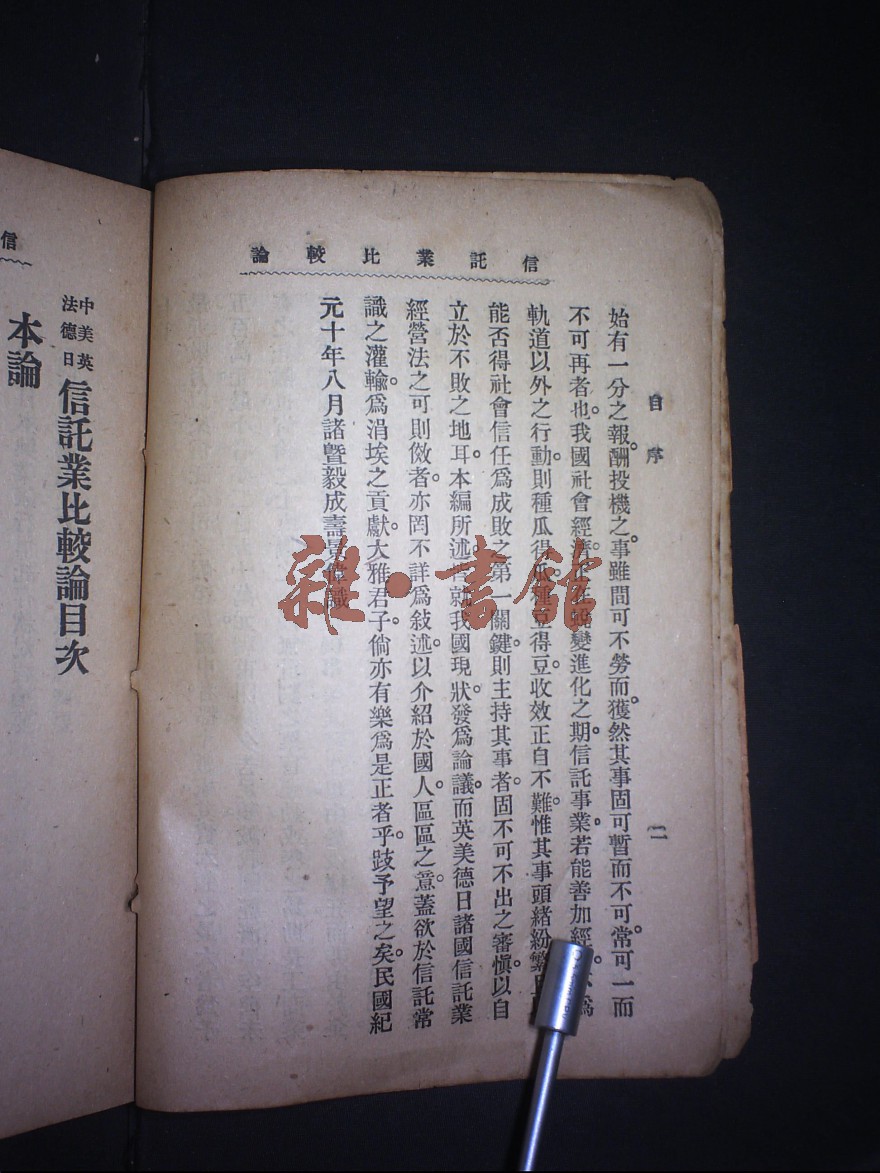 信託業比較論
自序
二
始有一分之報酬。投機之事雖間可不勞而獲。然其事固可暫而不可常。可一而
不可再者也。我國社會經正在變進化之期。信託事業。若能善加經為
軌道以外之行動。則種瓜得種豆得豆。收效正自不難。惟其事頭緒紛繁
能否得社會信任。為成敗之第一關鍵。則主持其事者。固不可不出之審愼。以自
立於不敗之地耳。本編所述。皆就我國現狀。發為論議。而英美德日諸國信託業
經營法之可則傚者。亦罔不詳為敍述。以介紹於國人。區區之意。蓋欲於信託常
識之灌輸。為涓埃之貢獻。大雅君子。倘亦有樂為是正者乎。跂予望之矣。民國紀
元十年八月諸暨毅成壽景偉識
雜·書館
信
中美英法德日信託業比較論目次
本論